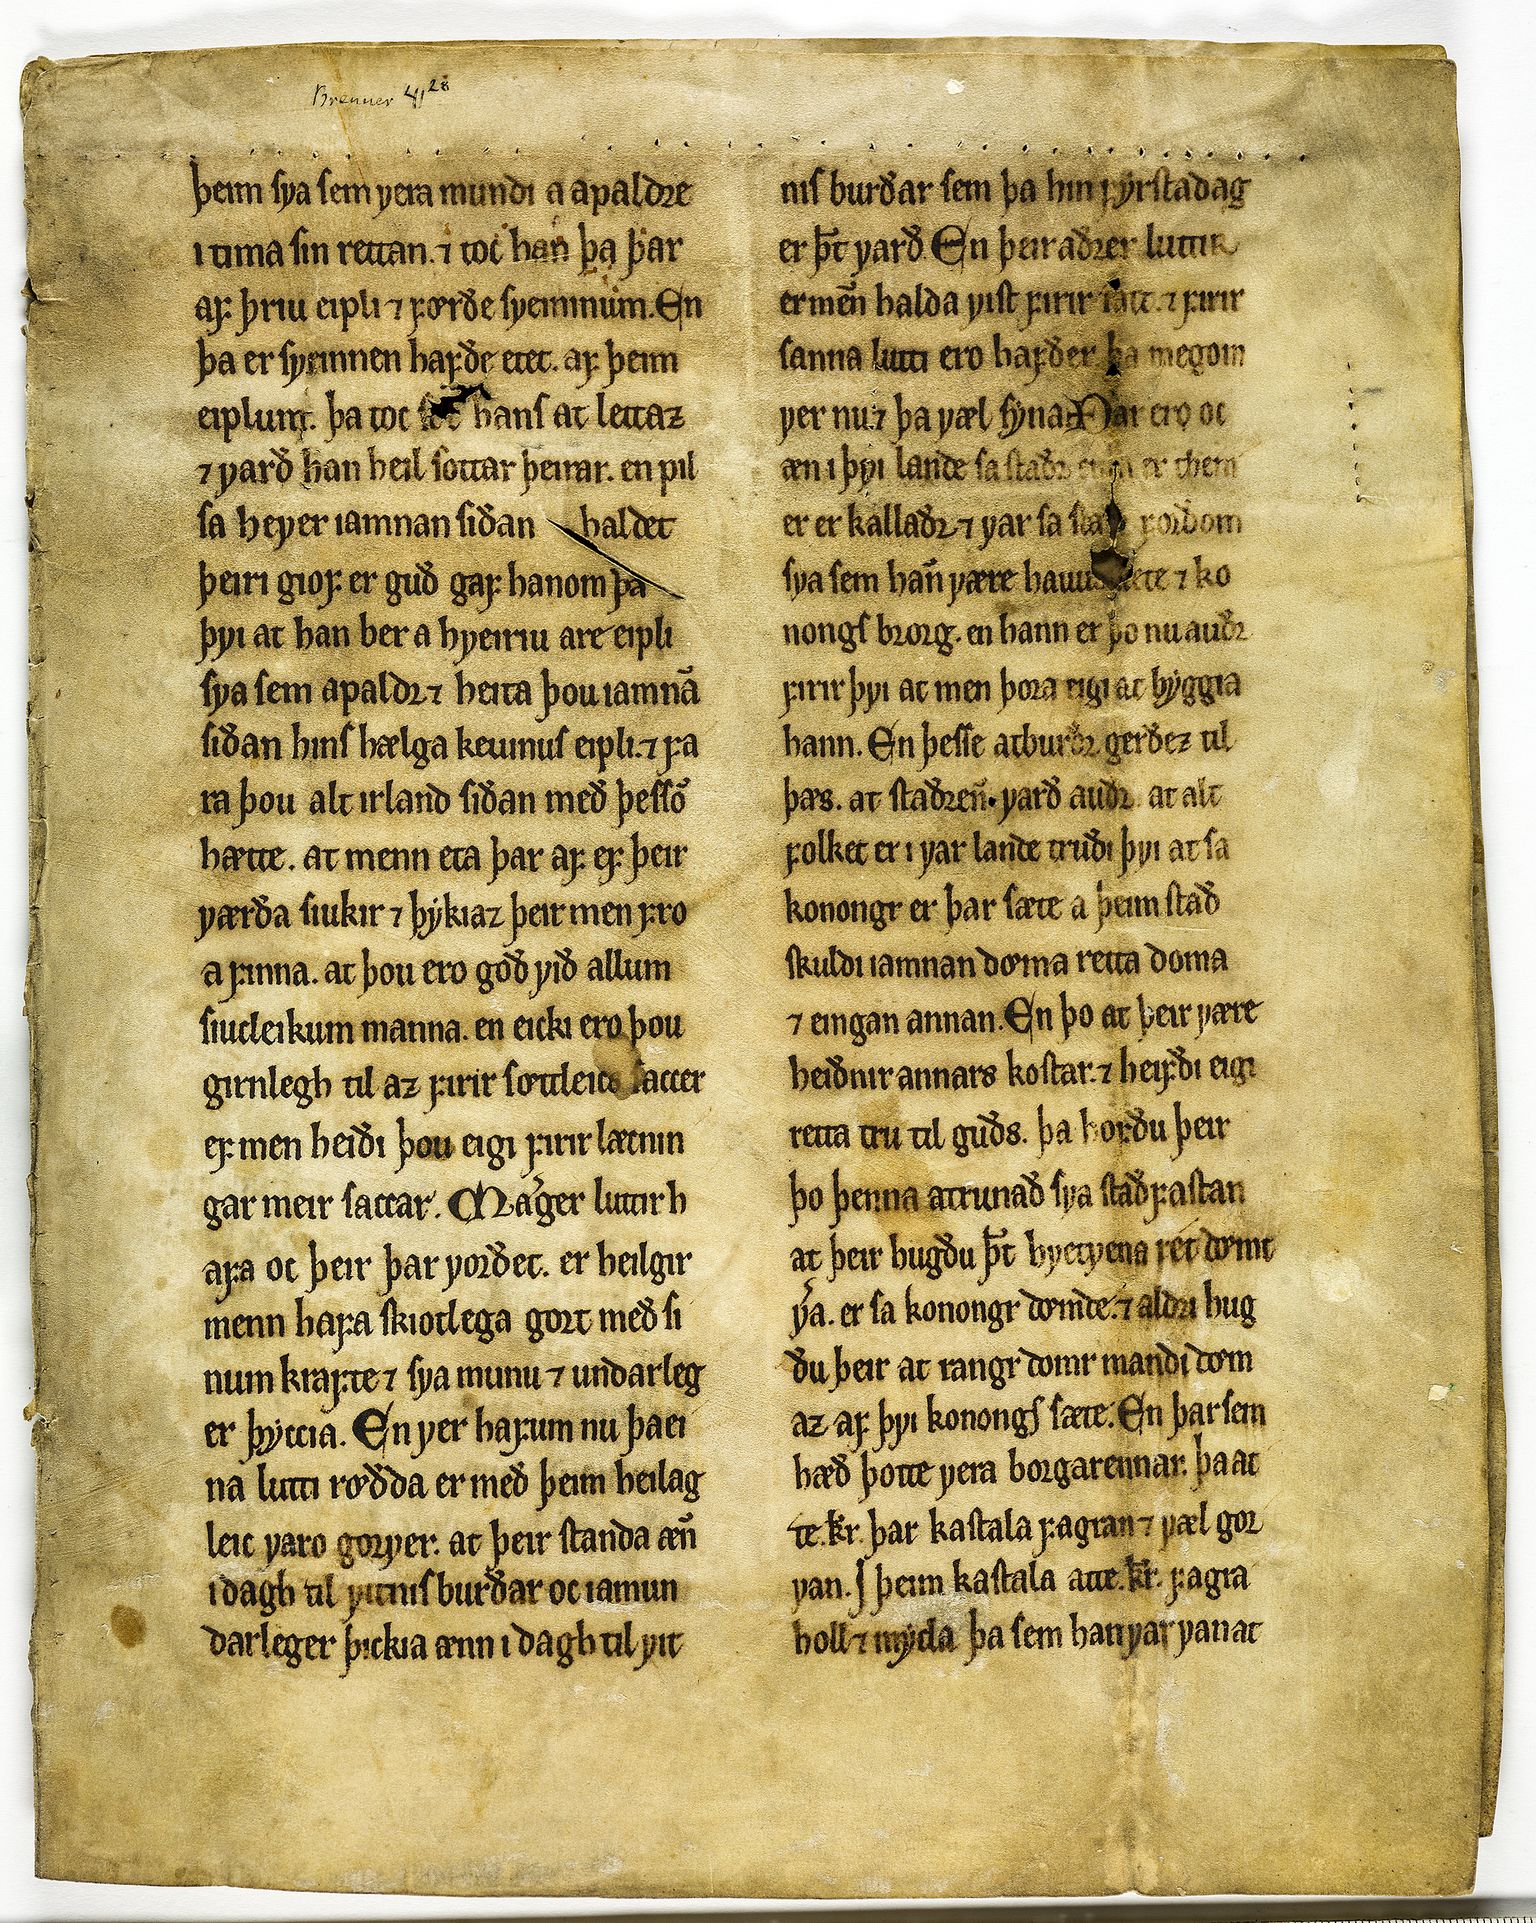 Brenner 41 28
þeim sva sem vera mundi a apaldre
i tima sin rettan. ⁊ toc han þa þar
af þriu eipli ⁊ fœrðe sveininum. En
þa er sveinnen hafðe etet. af þeim
eiplum. þa toc hans at lettaz
⁊ varð han heil sottar þeirar. en pil
sa hever iamnan siðan haldet
þeiri giof er guð gaf hanom þa
þvi at han ber a hveiriu are eipli
sva sem apaldꝛ ⁊ heita þou iamnā
siðan hins hælga keuinus eipli. ⁊ fa
ra þou alt irland siðan með þessō
hætte. at menn eta þar af ef þeir
værða siukir ⁊ þẏkiaz þeir men fro
a finna. at þou ero goð við allum
siucleikum manna. en eicki ero þou
girnlegh til az firir sœtleics saccer
ef men heiði þou eigi firir lætnin
gar meir saccar. Marger luttir h
afa oc þeir þar vorðet. er heilgir
menn hafa skiotlega gort með si
num krafte ⁊ sva munu ⁊ undarleg
er þyccia. En ver hafum nu þa ei
na lutti rœdda er með þeim heilag
leic varo gorver. at þeir standa æn̄
i dagh til vitnis burðar oc iamun
darleger þickia ænn i dagh til vit
nis burðar sem þa hin fẏrsta dag
er þ̄t varð. En þeir aðrer luttir
er men̄ halda vist firir satt. ⁊ firir
sanna lutti ero hafðer þa megom
ver nu ⁊ þa væl sẏna. Þar ero oc
æn i þvi lande sa staðꝛ einn er them
er er kallaðꝛ ⁊ var sa stað forðom
sva sem han̄ være hauut sæte ⁊ ko
nongs brorg. en hann er þo nu auðꝛ
firir þvi at men þora eigi at bẏggia
hann. En þesse atburðꝛ gerðez til
þæs. at staðꝛen̄ varð auðꝛ at alt
folket er i var lande truði þvi at sa
konongr er þar sæte a þeim stað
skuldi iamnan dœma retta doma
⁊ eingan annan. En þo at þeir være
heiðnir annars kostar. ⁊ heifði eigi
retta tru til guðs. þa hofðu þeir
þo þenna atrunað sva staðfastan
at þeir hugðu þ̄t hvetvena rét dœmt
va. er sa konongr dœmde. ⁊ aldri hug
ðu þeir at rangr domr mandi dœm
az af þvi konongs sæte. En þar sem
hæð þotte vera borgarennar. þa at
te. kr. þar kastala fagran ⁊ væl gor
van. J þeim kastala atte. kr. fagra
holl ⁊ mẏcla þa sem han var van at